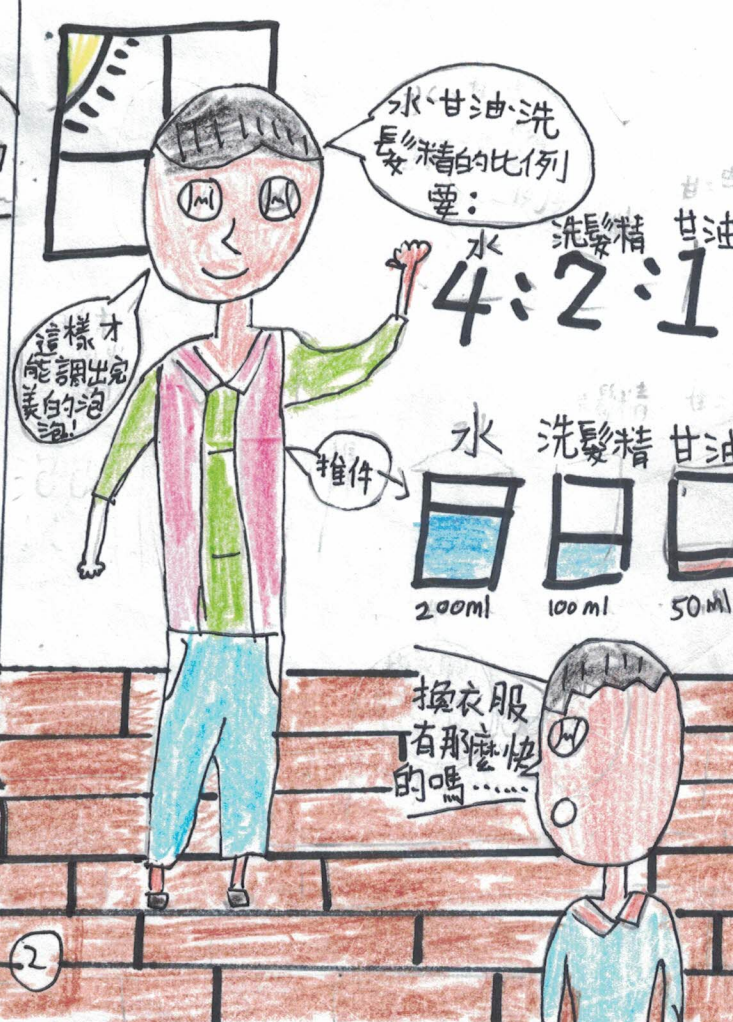 水、甘油、洗
髮精的比例
要:
水 洗髮精 甘油
4:2:1
這樣才
能調出完
美的泡
泡!
推件
水 洗髮精 甘油
200ml 100ml 50ml
換衣服
有那麼快
的嗎……
2